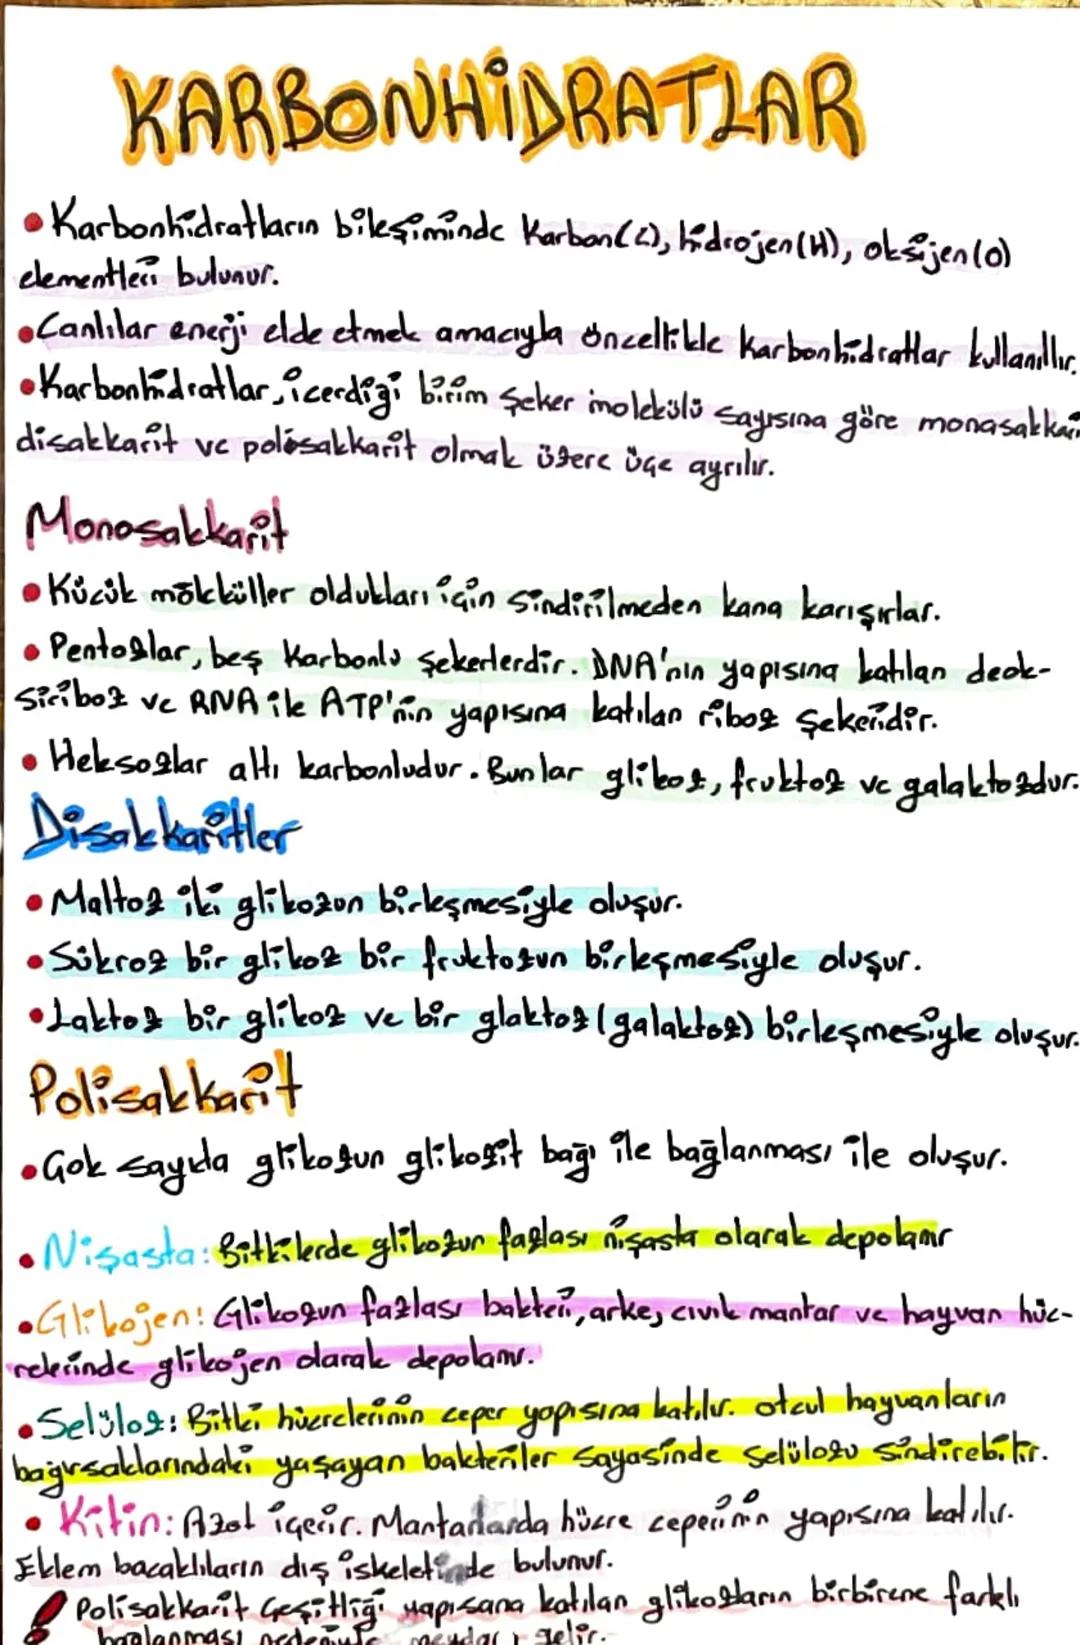 KARBONHİDRATLAR
• Karbonhidratların bileşiminde Karbon(C), hidrojen(H), oksijen(O)
elementleri bulunur.
• Canlılar enerji elde etmek amacıyla öncelikle karbonhidratlar kullanıllır.
• Karbonhidratlar, içerdiği birim şeker molekülü sayısına göre monosakkari
disakkarit ve polisakkarit olmak üzere üçe ayrılır.
Monosakkarit
• Kücük mölküller oldukları için sindirilmeden kana karışırlar.
• Pentozlar, beş Karbonlu şekerlerdir. DNA'nın yapısına katılan deok-
siriboz ve RNA ile ATP'nin yapısına katılan riboz şekeridir.
• Heksozlar altı karbonludur. Bunlar glikoz, fruktoz ve galaktozdur.
Disakkaritler
• Maltoz iki glikozun birleşmesiyle oluşur.
• Sükroz bir glikoz bir fruktozun birleşmesiyle oluşur.
• Laktoz bir glikoz ve bir glaktoz (galaktoz) birleşmesiyle oluşur.
Polisakkarit
• Çok sayıda glikozun glikozit bağı ile bağlanması ile oluşur.
• Nişasta: Bitkilerde glikozun fazlası nişasta olarak depolanır
• Glikojen: Glikozun fazlası bakteri, arke, cıvık mantar ve hayvan hüc-
relerinde glikojen olarak depolanır.
• Selüloz: Bitki hücrelerinin ceper yapısına katılır. otcul hayvanların
bağırsaklarındaki yaşayan bakteriler sayasinde selülozu sindirebilir.
• Kitin: Azot içerir. Mantarlarda hücre ceperinin yapısına katılır.
Eklem bacaklıların dış iskeletinde bulunur.
! Polisakkarit Çeşitliği yapısana katılan glikozların birbirene farklı
bağlanması nedeniyle meydana gelir.